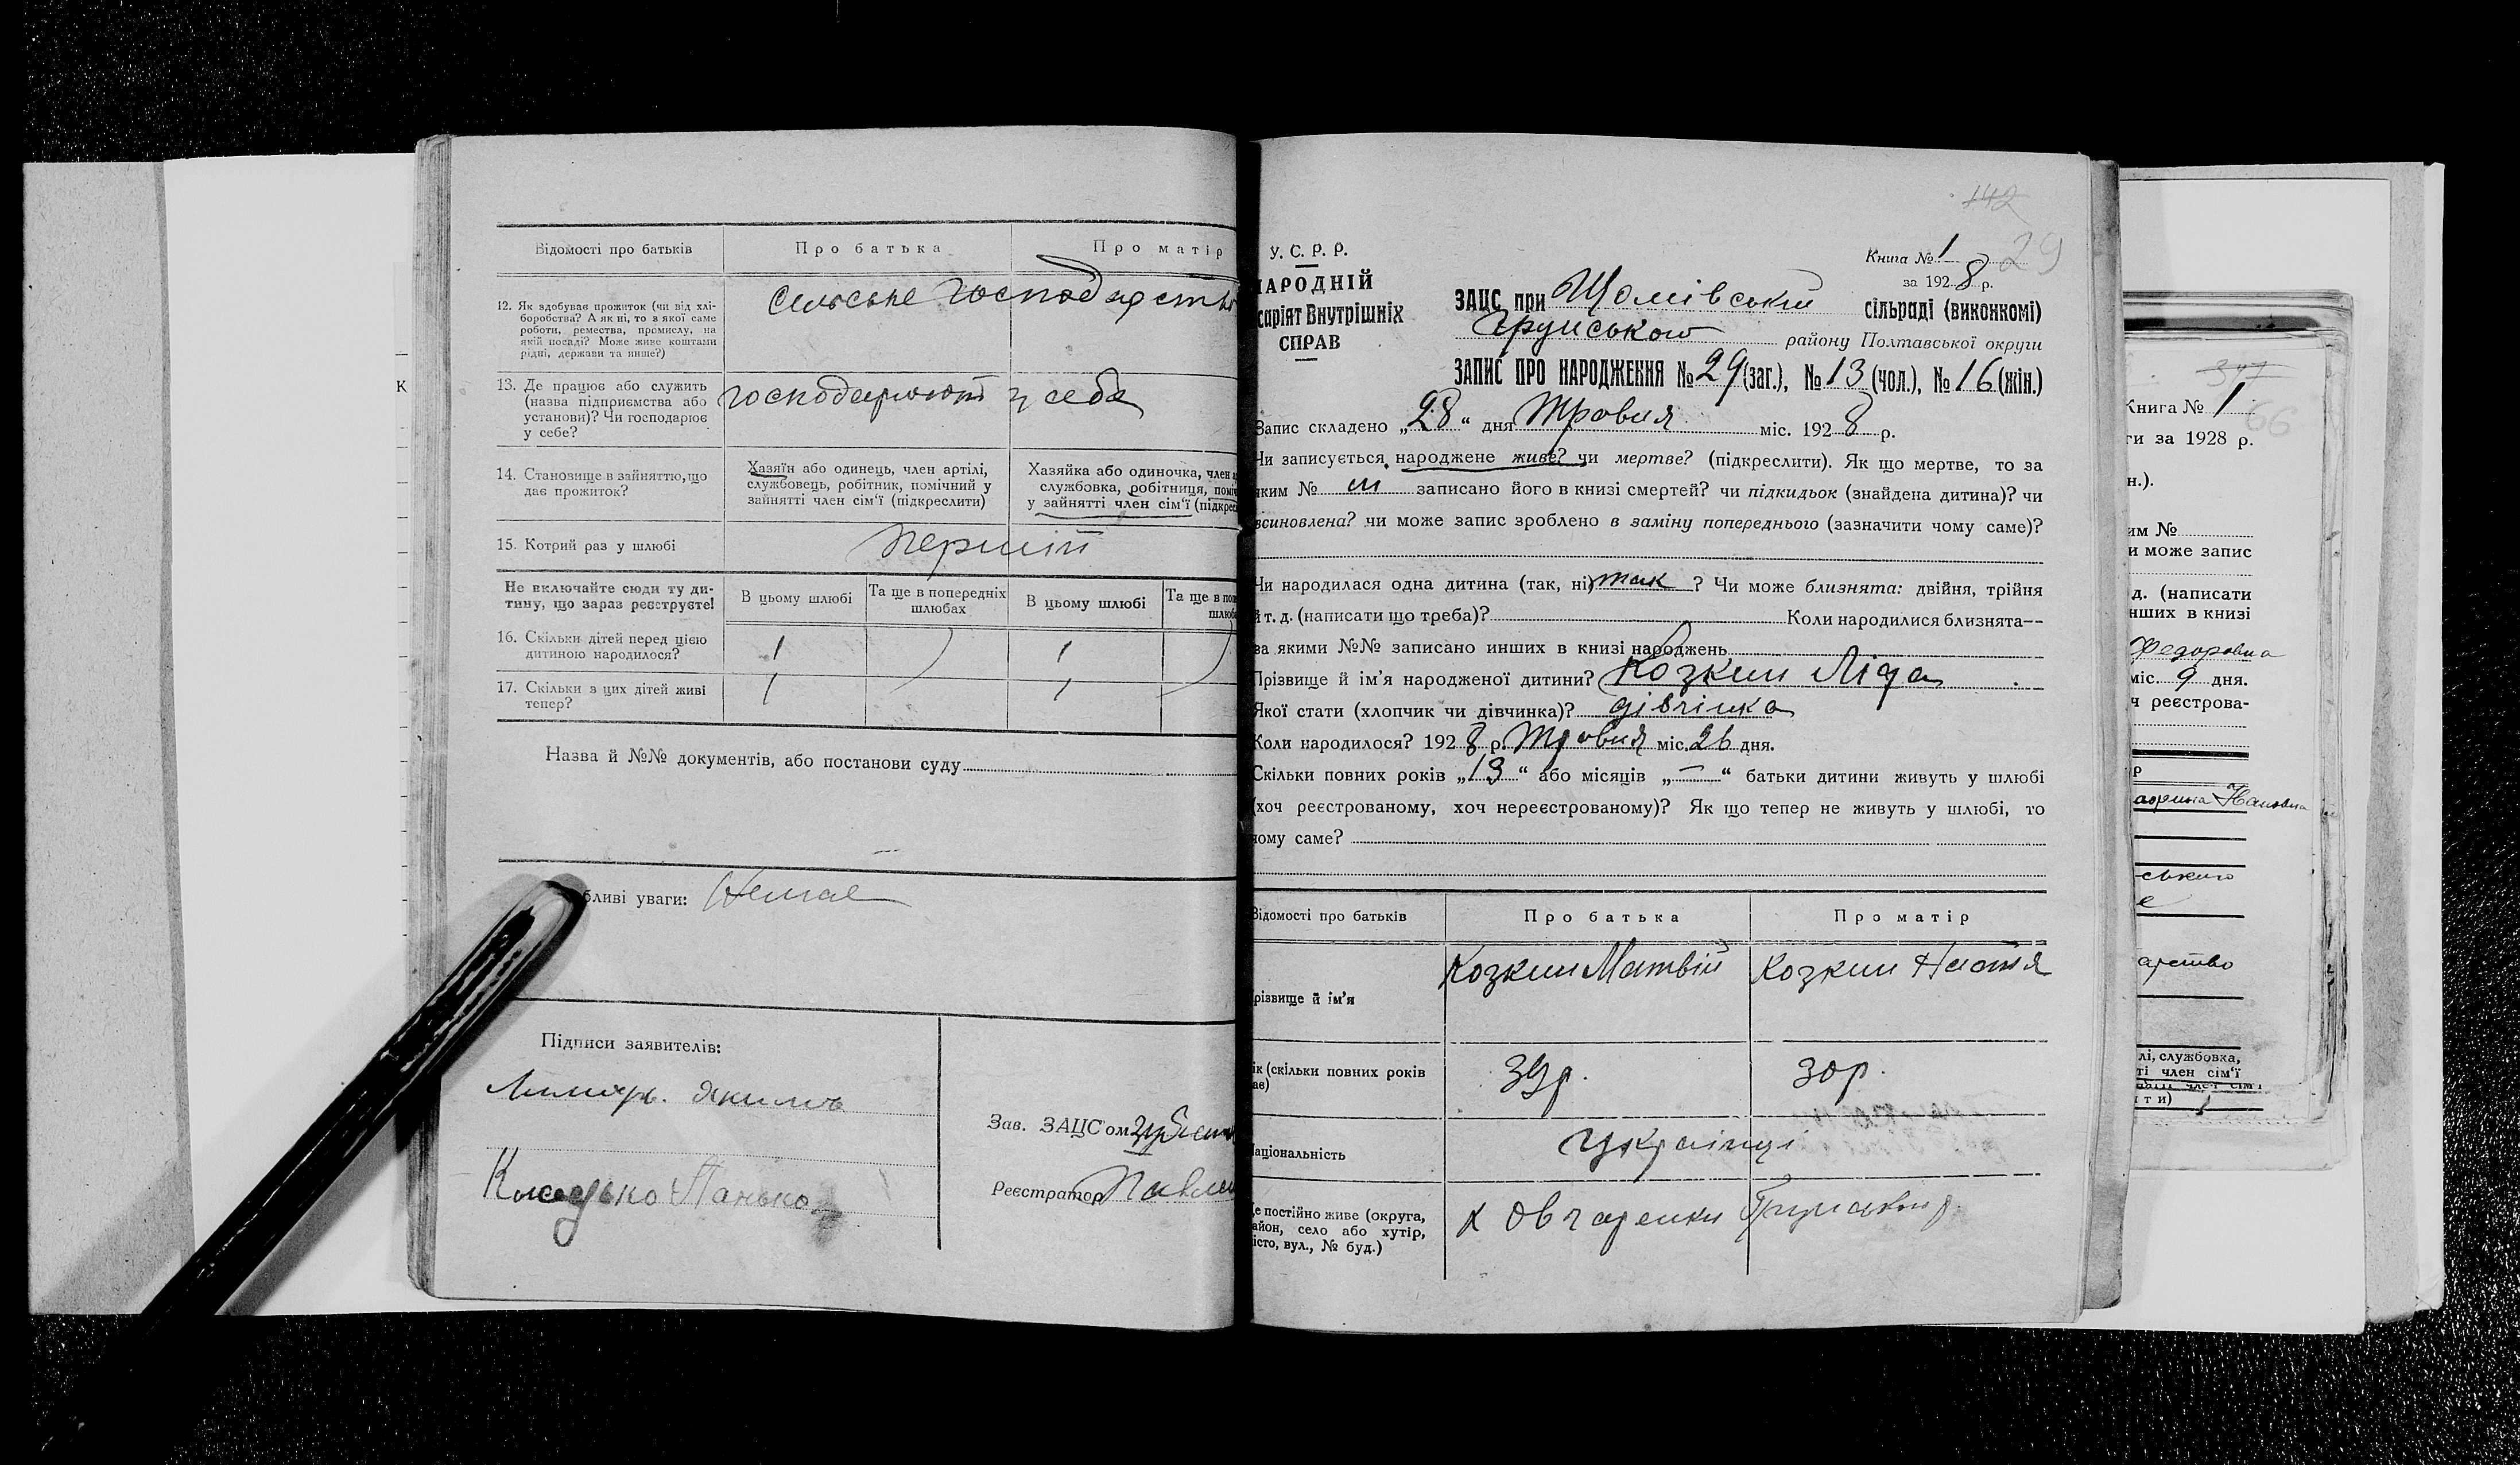 Відомості про батьків
Про батька
Про матір
12. Як здобуває прожиток (чи від хлі-
боробства? А як ні, то з якої саме
роботи, ремества, промислу, на
якій посаді? Може живе коштами
рідні, держави та инше?)
сельське господарство
13. Де працює або служить
(назва підприємства або
установи)? Чи господарює
у себе?
господарюют у себе
14. Становище в зайняттю, що
дає прожиток?
Хазяїн або одинець, член артілі,
службовець, робітник, помічний у
зайнятті член сім'ї (підкреслити)
Хазяйка або одиночка, член
службовка, робітниця,
у зайнятті член сім'ї
15. Котрий раз у шлюбі
перший
Не включайте сюди ту ди-
тину, що зараз реєструєте!
В цьому шлюбі
Та ще в попередніх
шлюбах
В цьому шлюбі
Та ще в
16. Скільки дітей перед цією
дитиною народилося?
1
1
17. Скільки з цих дітей живі
тепер?
1
1
Назва й №№ документів, або постанови суду
уваги: Немає
Підписи заявителів:
Зав. ЗАЦС'ом
Панько
Реєстратор
142
29
У.С.Р.Р.
СПРАВ
Книга № 1
за 1928 р.
ЗАЦС при сільраді (виконкомі)
району Полтавської округи
ЗАПИС ПРО НАРОДЖЕННЯ № 29 (заг.), № 13 (чол.), № 16 (жін.)
Запис складено „28“ дня Травня міс. 1928 р.
Чи записується народжене живе? чи мертве? (підкреслити). Як що мертве, то за
яким № записано його в книзі смертей? чи підкидьок (знайдена дитина)? чи
всиновлена? чи може запис зроблено в заміну попереднього (зазначити чому саме)?
Чи народилася одна дитина (так, ні) так? Чи може близнята: двійня, трійня
й т. д. (написати що треба)? Коли народилися близнята—
за якими №№ записано инших в книзі народжень
Прізвище й ім'я народженої дитини? Козкин Ліда
Якої стати (хлопчик чи дівчинка)? дівчінка
Коли народилося? 1928 р. Травня міс. 26 дня.
Скільки повних років „13“ або місяців „—“ батьки дитини живуть у шлюбі
(хоч реєстрованому, хоч нереєстрованому)? Як що тепер не живуть у шлюбі, то
чому саме?
Відомості про батьків
Про батька
Про матір
Прізвище й ім'я
Козкин Матвій
Козкин Настя
(скільки повних років
30р.
Національність
Українці
Де постійно живе (округа,
район, село або хутір,
місто, вул., № буд.)
х Овчаренки
Книга № 1
за 1928 р.
66
и може запис
д. (написати
нших в книзі
Федоровна
міс. 9 дня.
ч реєстрова-
службовка,
член сім'ї